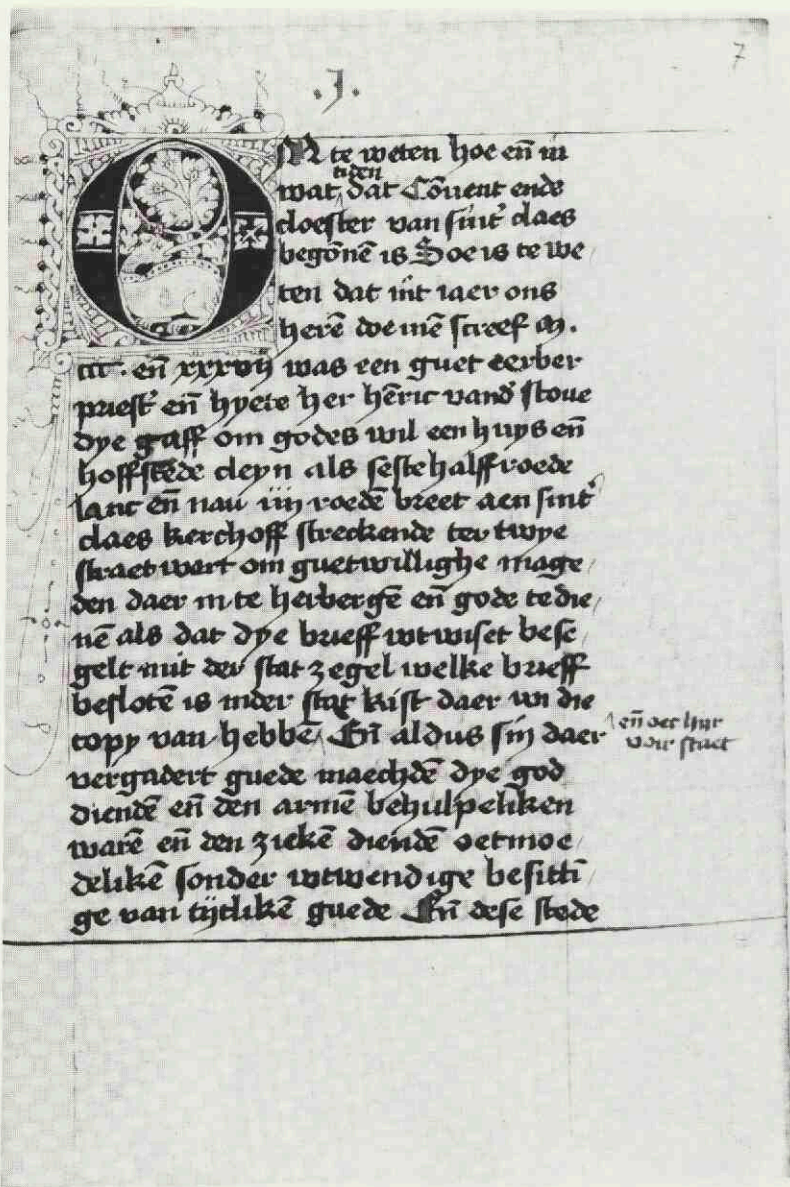 7
.J.
OM te weten hoe en̄ in
wat tiden dat Cōuent ende
cloester van sint claes
begōnē is Soe is te we
ten dat int iaer ons
herē doe mē screef M.
cccc. en̄ xxxvij was een guet eerber
priestʳ en̄ hyete her hēric vandʳ stoue
dye gaff om godes wil een huys en̄
hoffstēde cleyn als sestehalff roede
lanc en̄ nau iiij roedē breet aen sintʳ
claes kerchoff streckende ter twye
straet wart om guetwillighe mage
den daer in te herbergē en̄ gode te die
nē als dat dye brieff wtwiset bese
gelt mit der stat zegel welke brieff
beslotē is inder stat kist daer wi die
copy van hebbē En̄ aldus sijn daer
en̄ oec hier
voir staet
vergadert guede maechdē dye god
diendē en̄ den armē behulpeliken
warē en̄ den ziekē diendē oetmoe
delikē sonder wtwendige besitti
ge van tijtlikē guede En̄ dese stede